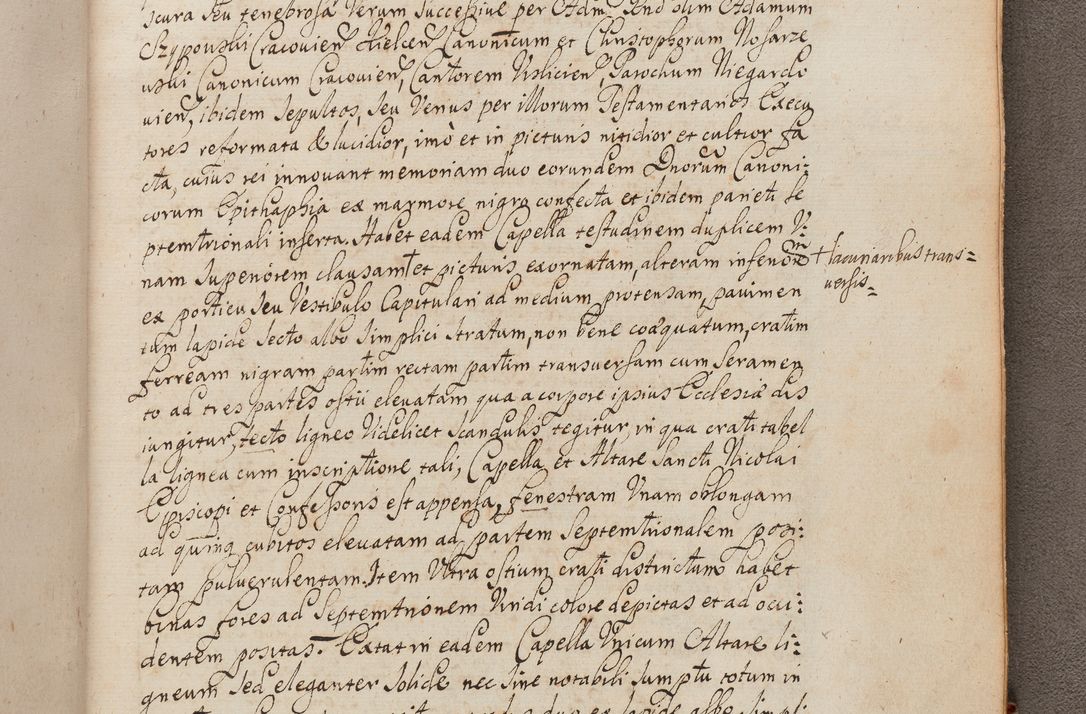 scura seu tenebrosa Verum successive per Adm Rnd olim Adamum
Szypowski Cracovien Kielcen Canonicum et Christophorum Nosarze
wski Canonicum Cracovien, Cantorem Vislicien, Parochum Niegardo
vien, ibidem sepultos, seu Verius per illorum Testamentarios Execu
tores reformata & lucidior, imò et in picturis nitidior et cultior fa
cta, cuius rei innovant memoriam duo eorundem Dnorum Canoni:
corum Epithaphia ex marmore nigro confecta et ibidem parieti se
ptemtrionali inserta. Habet eadem Capella testudinem duplicem V:
nam superiorem clausam + et picturis exornatam, alteram inferiorem
+ lacunaribus trans=
versis=
ex porticu seu Vestibulo Capitulari ad medium protensam, pavimen
tum lapide secto albo simplici stratum, non bene coæquatum, cratim
ferream nigram partim rectam partim transversam cum seramen
to ad tres partes ostii elevatam qua a corpore ipsius Ecclesiæ dis
iungitur, tecto ligneo Videlicet scandulis tegitur, in qua crati tabel
la lignea cum inscriptione tali, Capella et Altare Sancti Nicolai
Episcopi et Confessoris est appensa, fenestram Unam oblongam
ad quinq cubitos elevatam ad partem Septemtrionalem posi:
tam pulverulentam. Item Ultra ostium crati distinctam habet
binas fores ad Septemtrionem Viridi colore depictas et ad occi:
dentem positas. Extat in eadem Capella Unicum Altare li:
gneum sed eleganter solide nec sine notabili sumptu totum in